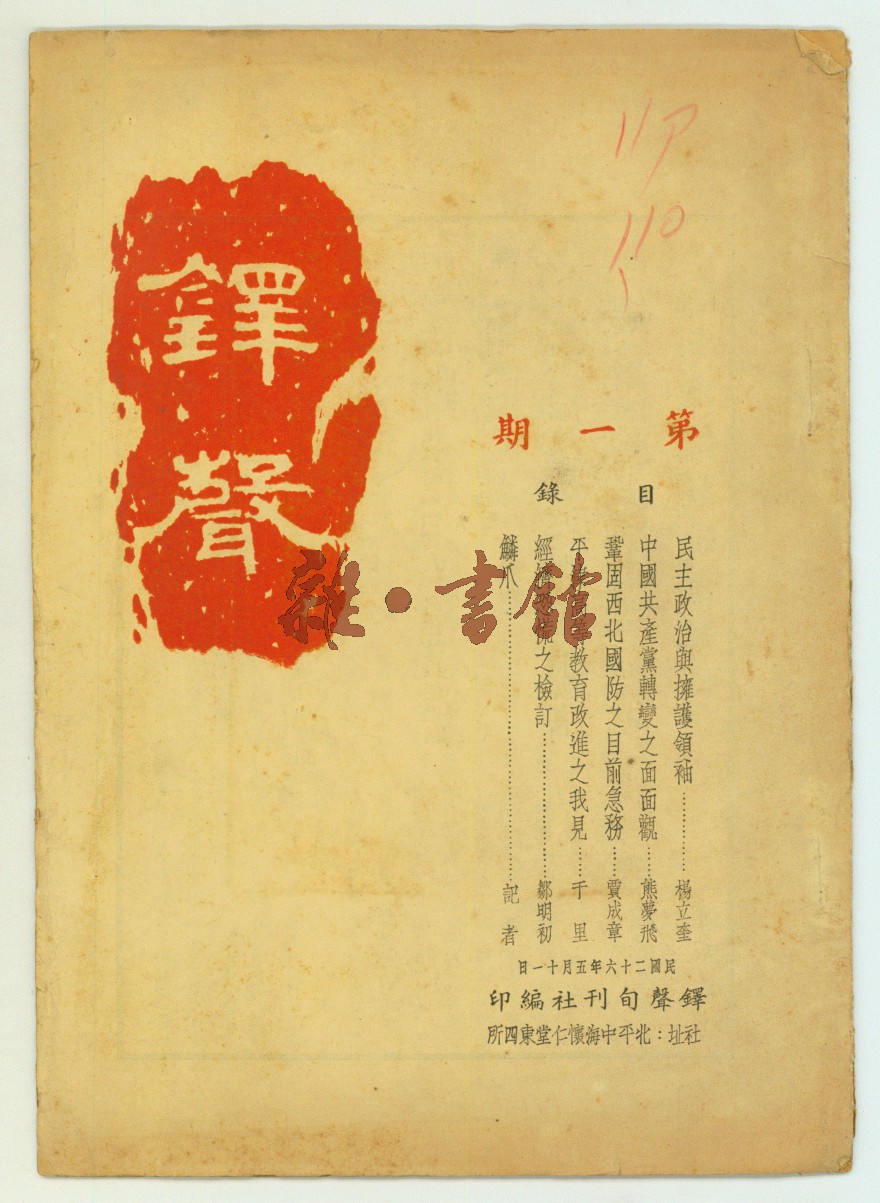 鐸聲
第一期
目錄
民主政治與擁護領袖…………楊立奎
中國共產黨轉變之面面觀……熊夢飛
鞏固西北國防之目前急務……賈成章
平教育改進之我見……千里
經濟之檢訂…………………鄒明初
鱗爪……………………………記者
民國二十六年五月十一日
鐸聲旬刊社編印
社址：北平中海懷仁堂東四所
雜·書館
110